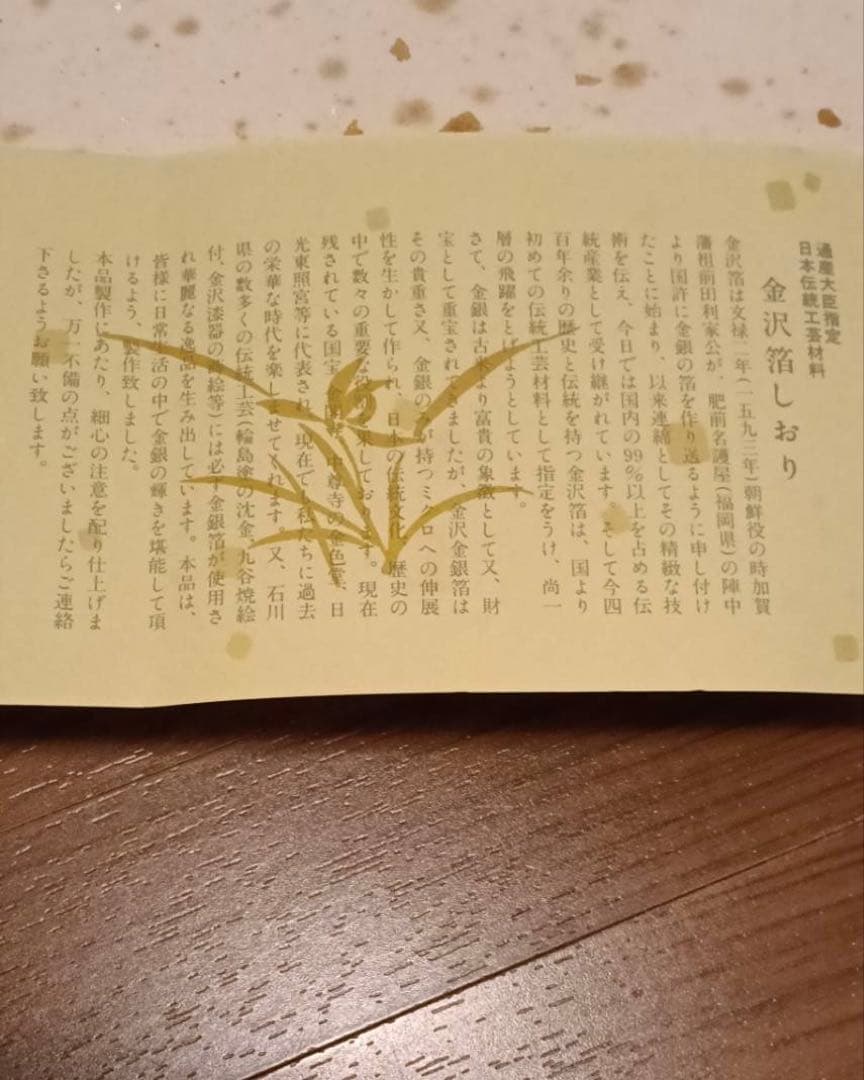 通産大臣指定
日本伝統工芸材料
金沢箔しおり
金沢箔は文禄二年(一五九三年)朝鮮役の時加賀
藩祖前田利家公が、肥前名護屋(福岡県)の陣中
より国許に金銀の箔を作り送るように申し付け
たことに始まり、以来連綿としてその精緻な技
術を伝え、今日では国内の99%以上を占める伝
統産業として受け継がれています。そして今四
百年余りの歴史と伝統を持つ金沢箔は、国より
初めての伝統工芸材料として指定をうけ、尚一
層の飛躍をとげようとしています。
さて、金銀は古来より富貴の象徴として又、財
宝として重宝されてきましたが、金沢金銀箔は
その貴重さ又、金銀のみが持つミクロへの伸展
性を生かして作られ、日本の伝統文化、歴史の
中で数々の重要な役割を果しております。現在
残されている国宝、金閣寺、中尊寺の金色堂、日
光東照宮等に代表され、現在でも私たちに過去
の栄華な時代を楽しませてくれます。又、石川
県の数多くの伝統工芸(輪島塗の沈金、九谷焼絵
付、金沢漆器の蒔絵等)には必ず金銀箔が使用さ
れ華麗なる逸品を生み出しています。本品は、
皆様に日常生活の中で金銀の輝きを堪能して頂
けるよう、製作致しました。
本品製作にあたり、細心の注意を配り仕上げま
したが、万一不備の点がございましたらご連絡
下さるようお願い致します。